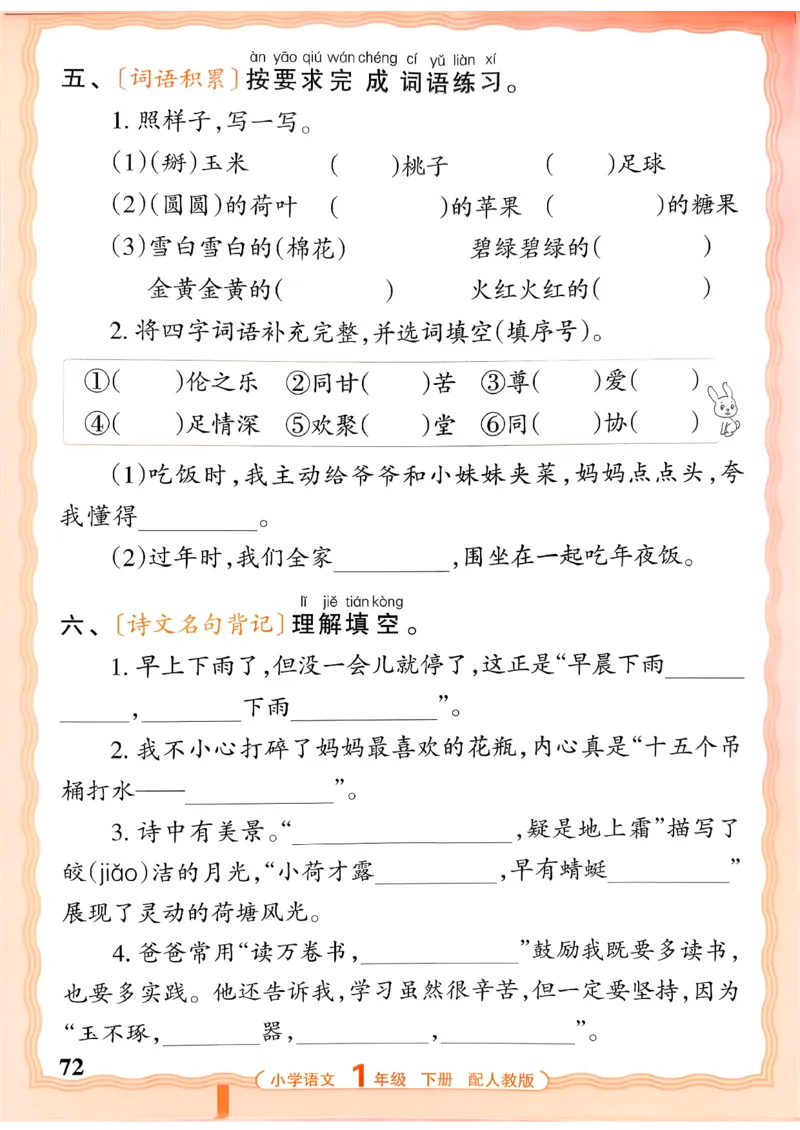 àn yāo qiú wán chéng cí yǔ liàn xí
五、〔词语积累〕按要求完成词语练习。
1. 照样子,写一写。
(1)(掰)玉米 (  )桃子 (  )足球
(2)(圆圆)的荷叶 (  )的苹果 (  )的糖果
(3)雪白雪白的(棉花) 碧绿碧绿的(  )
金黄金黄的(  ) 火红火红的(  )
2. 将四字词语补充完整,并选词填空(填序号)。
①(  )伦之乐 ②同甘(  )苦 ③尊(  )爱(  )
④(  )足情深 ⑤欢聚(  )堂 ⑥同(  )协(  )
(1)吃饭时,我主动给爷爷和小妹妹夹菜,妈妈点点头,夸
我懂得________。
(2)过年时,我们全家________,围坐在一起吃年夜饭。
lǐ jiě tián kòng
六、〔诗文名句背记〕理解填空。
1. 早上下雨了,但没一会儿就停了,这正是“早晨下雨______
______,________下雨____________”。
2. 我不小心打碎了妈妈最喜欢的花瓶,内心真是“十五个吊
桶打水——____________”。
3. 诗中有美景。“__________________,疑是地上霜”描写了
皎(jiǎo)洁的月光,“小荷才露__________,早有蜻蜓__________”
展现了灵动的荷塘风光。
4. 爸爸常用“读万卷书,____________”鼓励我既要多读书,
也要多实践。他还告诉我,学习虽然很辛苦,但一定要坚持,因为
“玉不琢,________器,__________,____________”。
72
小学语文 1年级 下册 配人教版